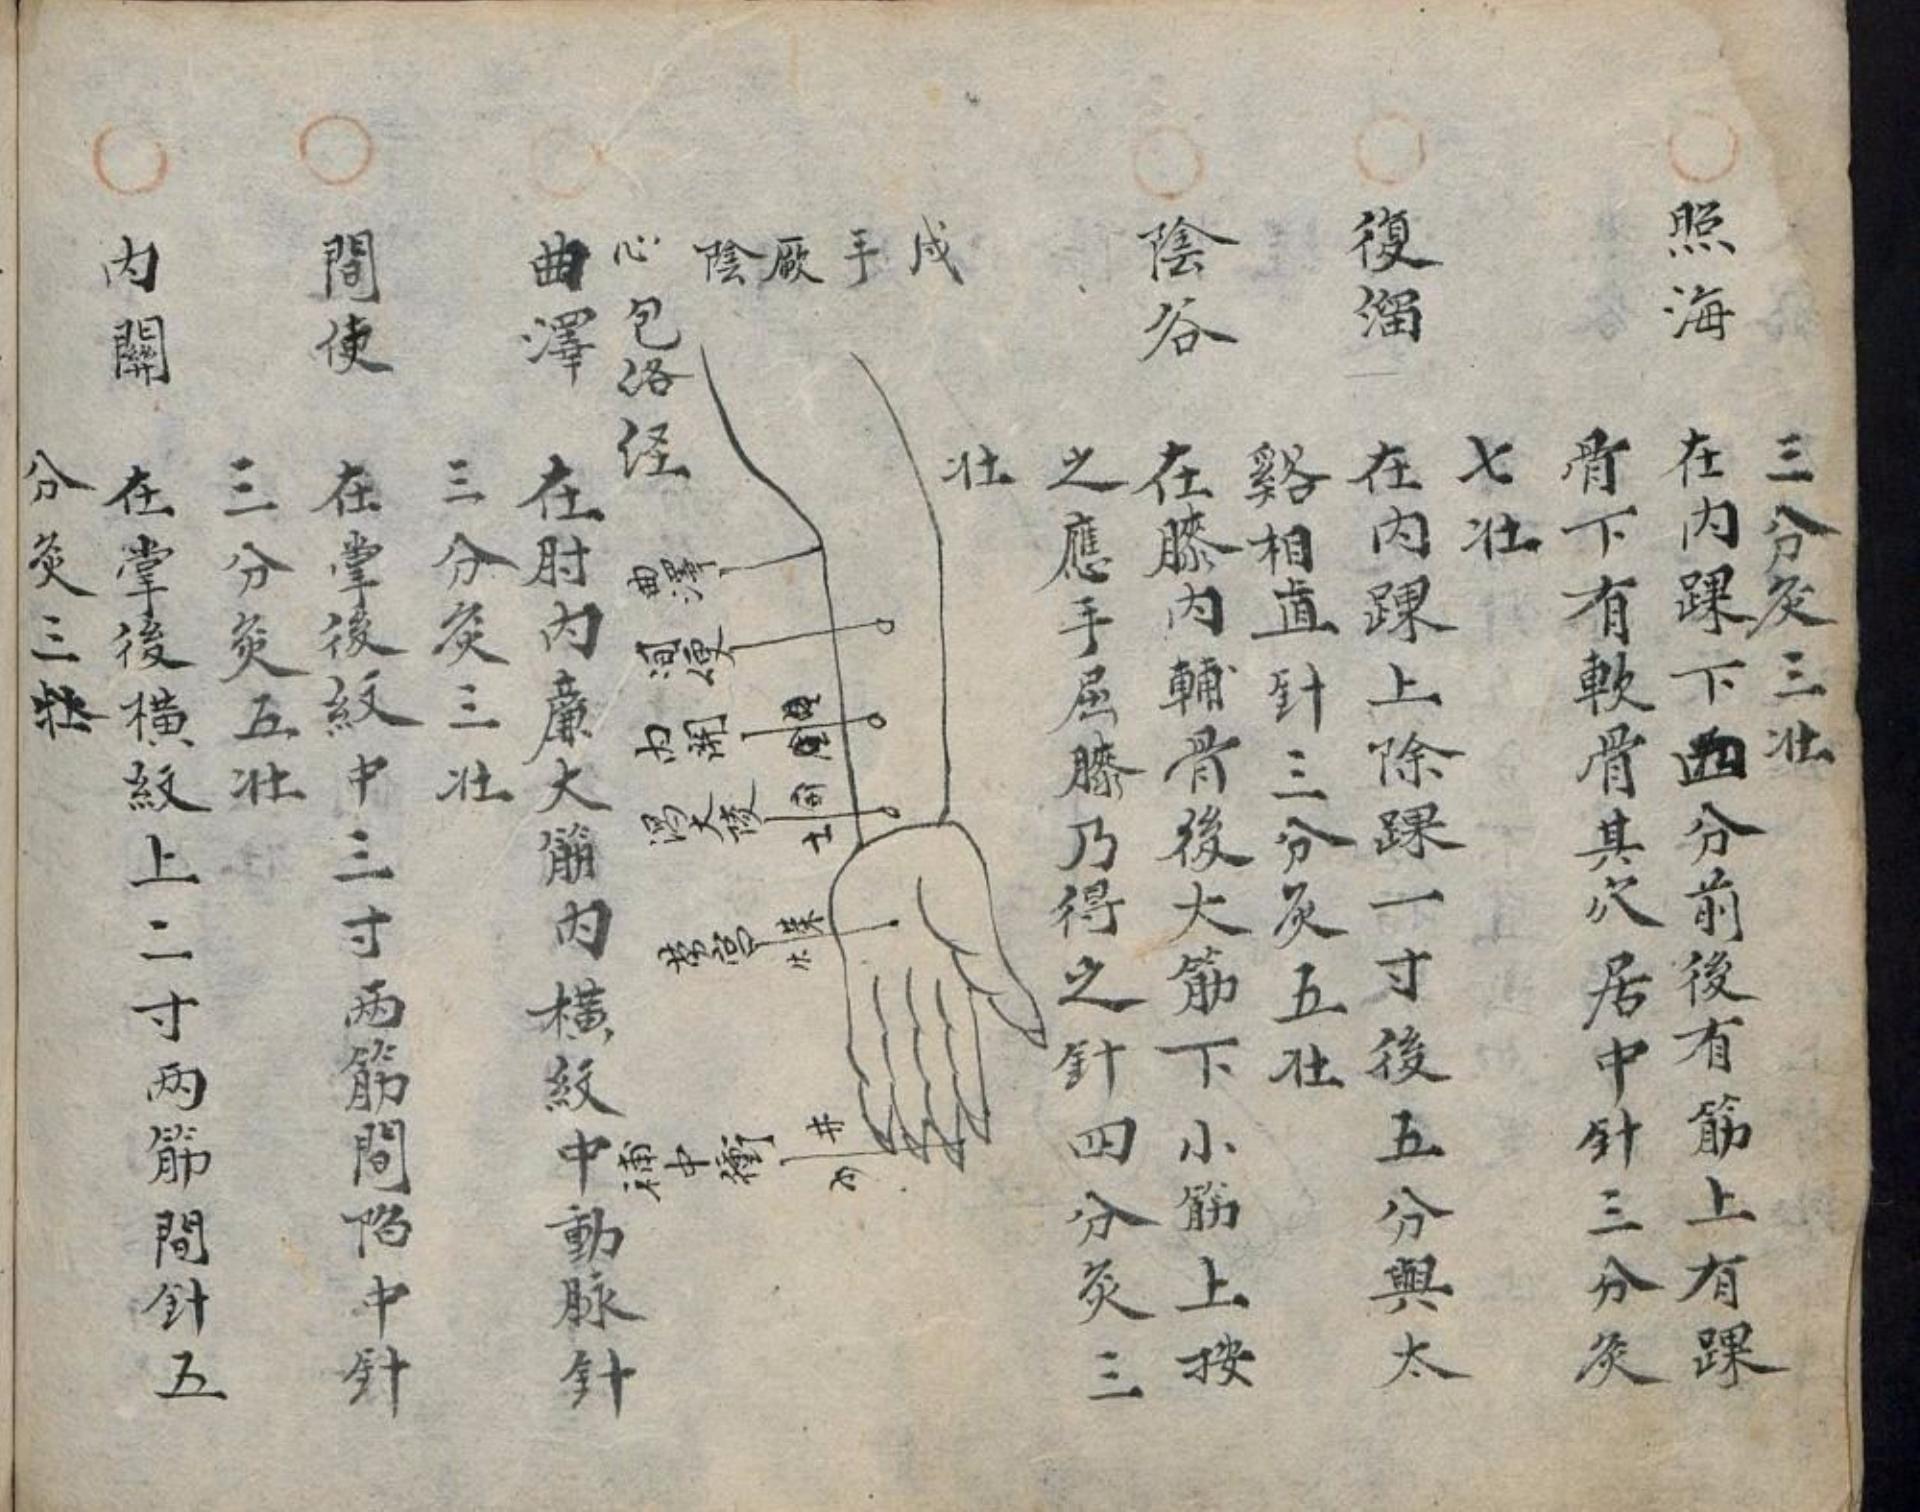 三分灸三壮
照海
在内踝下四分前後有筋上有踝
骨下有軟骨其穴居中針三分灸
七壮
復溜
在内踝上除踝一寸後五分與太
谿相直針三分灸五壮
陰谷
在膝内輔骨後大筋下小筋上按
之應手屈膝乃得之針四分灸三
壮
戌手厥陰
心包洛経
曲澤
間使
内關
瀉大陵
勞宮
補中衝
井
曲澤
在肘内廉大筋内横紋中動脉針
三分灸三壮
間使
在掌後紋中三寸两筋間陷中針
三分灸五壮
内關
在掌後横紋上二寸两筋間針五
分灸三壮